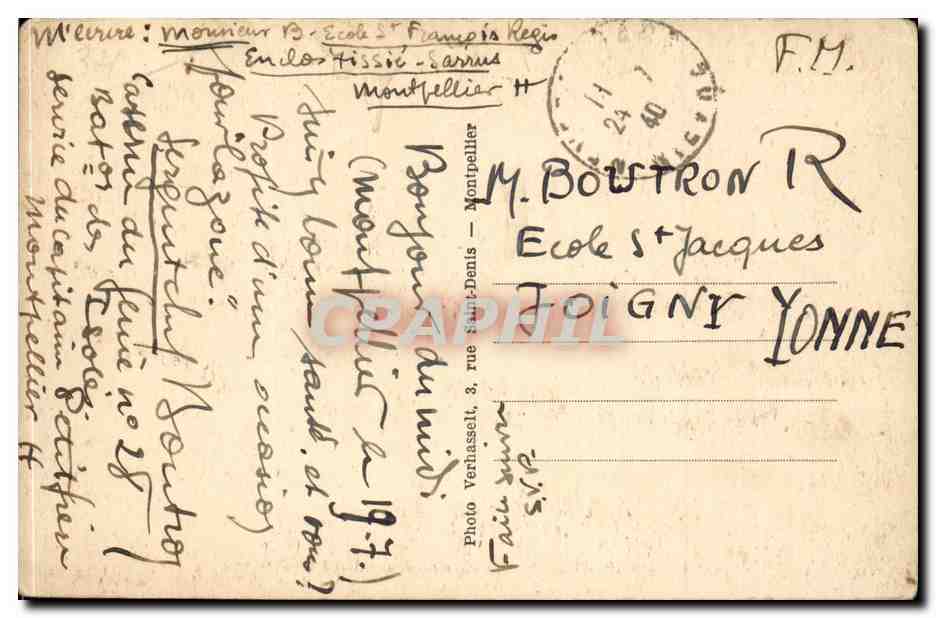 M'écrire : Monsieur B - Ecole St François Régis
Enclos Tissié-Sarrus
Montpellier H
F.M.
24 7
40
Bonjour du midi
(Montpellier le 19.7.)
Suis bonne santé. et vous ?
Profite d'un occasion
pour "la zone".
Sergent chef Boutron
Caserne du Génie n° 28
Baton des Isolés
service du Capitaine
Montpellier H
Photo Verhasselt, 3, rue Saint-Denis — Montpellier
M. BOUTRON R
Ecole St Jacques
JOIGNY YONNE
Faire suivre
S.V.P.
CPAPHIL